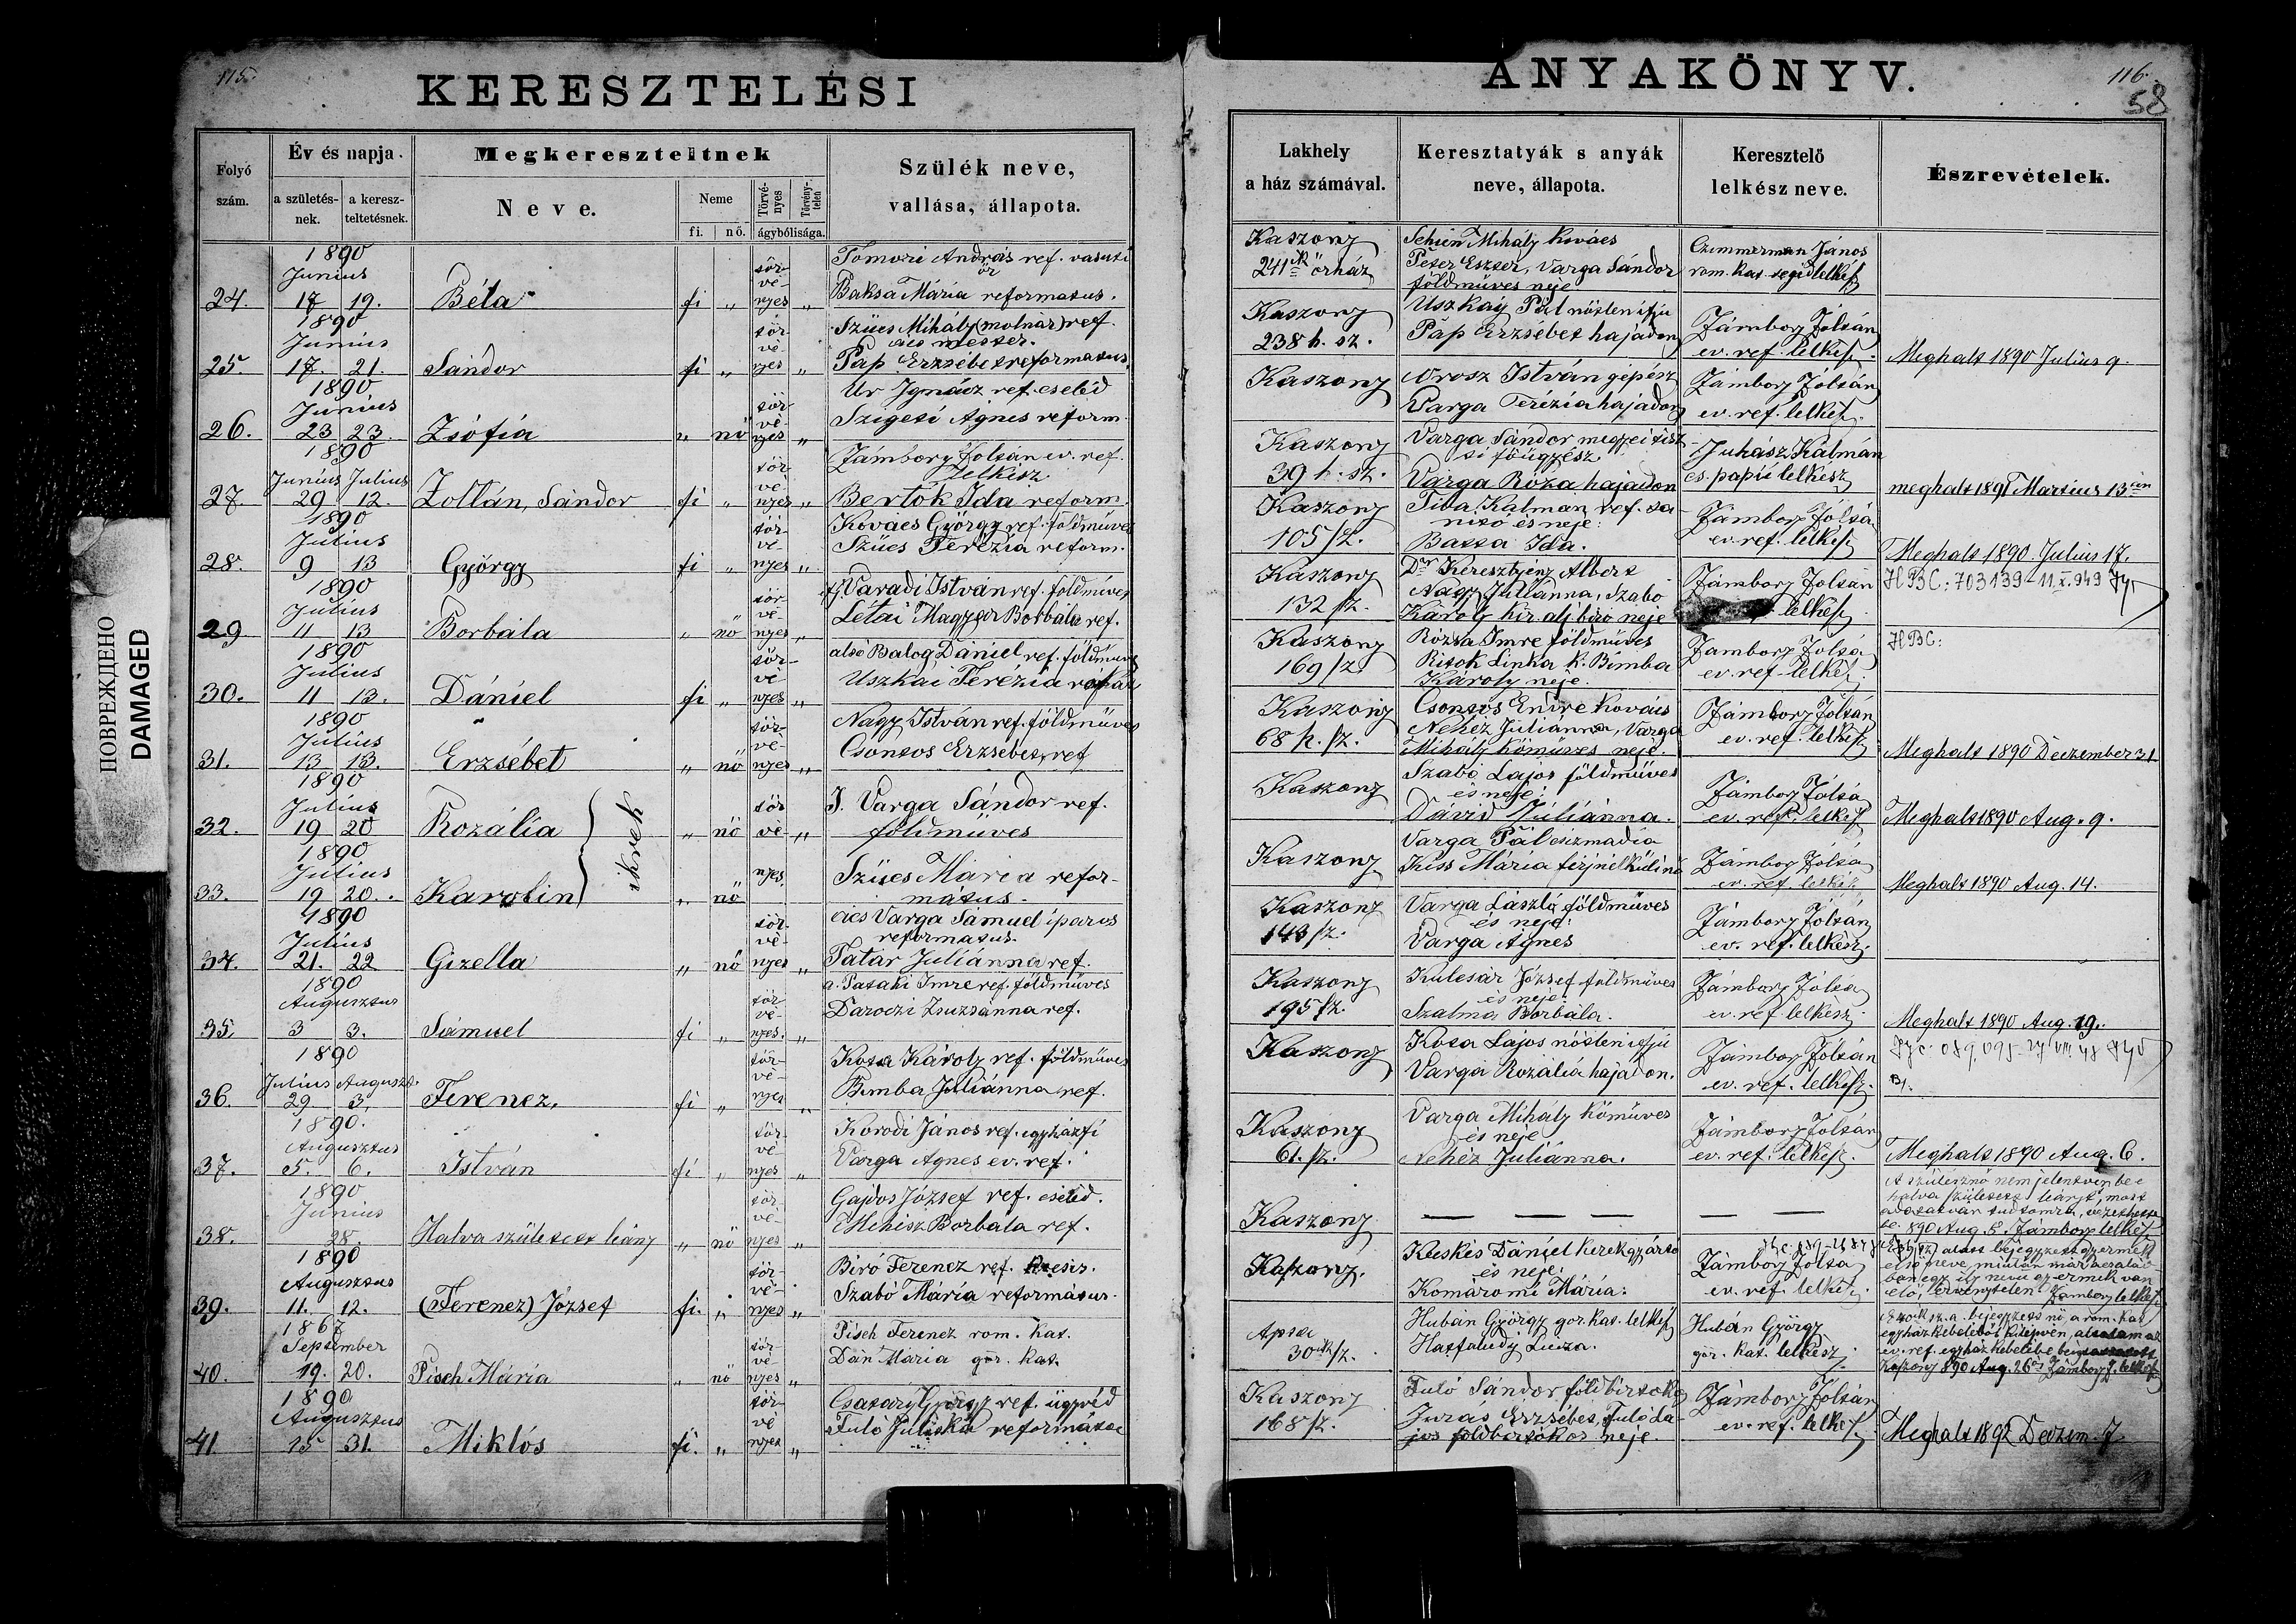 115.
KERESZTELÉSI
Folyó szám.
Év és napja.
a születés-nek.
a keresz-teltetésnek.
Megkereszteltnek
Neve.
Neme
fi.
nő.
Törvé-nyes
Törvény-telen
ágybólisága.
Szülék neve,
vallása, állapota.
ANYAKÖNYV.
116.
58
Lakhely
a ház számával.
Keresztatyák s anyák
neve, állapota.
Keresztelő
lelkész neve.
Észrevételek.
24. 1890 Junius 17 19. Béla fi „ tör-vé-nyes „
Tomori András ref. vasuti őr
Baksa Mária reformatus.
Kaszony 241 őrház
Mihály kovács
Péter Eszter, Varga Sándor
földműves neje
Czimmerman János
rom. kat. segédlelkész
25. 1890 Junius 17. 21. Sándor fi „ tör-vé-nyes „
Szűcs Mihály (molnár) ref.
ács mester.
Pap Erzsébet reformatus.
Kaszony 238 h. sz.
Uszkay Pál nőtlen ifju
Pap Erzsébet hajadon
Jámbory Zoltán
ev. ref. lelkész.
Meghalt 1890 Julius 9.
26. 1890 Junius 23 23. Zsófia „ nő tör-vé-nyes „
Ur Ignácz ref. cseléd
Szigeti Ágnes reform.
Kaszony
Orosz István gépész
Varga Terézia hajadon
Jámbory Zoltán
ev. ref. lelkész.
27. 1890 Junius Julius 29 12. Zoltán, Sándor fi „ tör-vé-nyes „
Jámbory Zoltán ev. ref.
lelkész
Bertók Ida reform.
Kaszony 39 h. sz.
Varga Sándor megyei tisz-
ti főügyész.
Varga Róza hajadon
Juhász Kálmán
cs. papii lelkész
meghalt 1891 Martius 13
28. 1890 Julius 9 13 György fi „ tör-vé-nyes „
Kovács György ref. földműves
Szűcs Terézia reform.
Kaszony 105 sz.
Tiba Kálmán ref. ta-
nitó és neje:
Ida.
Jámbory Zoltán
ev. ref. lelkész
Meghalt 1890. Julius 17.
29. 1890 Julius 11 13 Borbála „ nő tör-vé-nyes „
Váradi István ref. földműves
Létai Magyar Borbála ref.
Kaszony 132 sz.
Dr Keresztyény Albert
Nagy Juliánna, Szabó
Károly kir. alj. biró neje
Jámbory Zoltán
lelkész.
HBC: 703139-11.X.949
30. 1890 Julius 11 13. Dániel fi „ tör-vé-nyes „
alsó Balog Dániel ref. földműves
Uszkai Terézia
Kaszony 169 sz.
Rózsa Imre földműves
Ritók Linka k. Bimba
Károly neje.
Jámbory Zoltán
ev. ref. lelkész.
HBC:
31. 1890 Julius 13 13. Erzsébet „ nő tör-vé-nyes „
Nagy István ref. földműves
Csontos Erzsébet, ref
Kaszony 68 h. sz.
Csontos Endre kovács
Nehéz Juliánna, Varga
Mihály kőműves neje.
Jámbory Zoltán
ev. ref. lelkész
Meghalt 1890 Deczember 31
32. 1890 Julius 19 20 Rozália „ nő tör vé- „
J. Varga Sándor ref.
földműves
Kaszony
Szabó Lajos földműves
és neje:
Dávid Juliánna.
Jámbory Zoltán
ev. ref. lelkész
Meghalt 1890 Aug. 9.
ikrek
33. 1890 Julius 19 20. Karolin „ nő nyes.
Szűcs Mária refor-
mátus.
Kaszony
Varga Pál csizmadia
Kiss Mária férjnélküli nő
Jámbory Zoltán
ev. ref. lelkész
Meghalt 1890 Aug. 14.
34. 1890 Julius 21. 22 Gizella „ nő tör-vé-nyes „
ács Varga Sámuel iparos
reformatus.
Tatár Juliánna ref.
Kaszony 143 sz.
Varga László földműves
és neje
Varga Ágnes
Jámbory Zoltán
ev. ref. lelkész.
35. 1890 Augusztus 3 3. Sámuel fi „ tör-vé-nyes. „
a. Pataki Imre ref. földműves
Daróczi Zsuzsánna ref.
Kaszony 195 sz.
Kulcsár József földműves
és neje:
Szalma Borbála.
Jámbory Zoltán
ev. ref. lelkész.
Meghalt 1890 Aug. 19.
36. 1890 Julius Auguszt. 29 3. Ferencz. fi „ tör-vé-nyes „
Kota Károly ref. földműves
Bimba Juliánna ref.
Kaszony
Kota Lajos nőtlen ifju
Varga Rozália hajadon.
Jámbory Zoltán
ev. ref. lelkész.
37. 1890. Augusztus 5. 6. István fi „ tör-vé-nyes „
Kóródi János ref. egyházfi
Varga Ágnes ev. ref.
Kaszony 61. sz.
Varga Mihály kőműves
és neje
Nehéz Juliánna.
Jámbory Zoltán
ev. ref. lelkész.
Meghalt 1890 Aug. 6.
38. 1890 Junius 28. Halva született leány „ nő tör-vé-nyes „
Gajdos József ref. cseléd.
Borbála ref.
Kaszony
— — — — —
A szülésznő nem jelentvén be e
halva született leányt, most
890 Aug. 8. Jámbory lelkész
39. 1890 Augusztus 11. 12. (Ferencz) József fi. „ tör-vé-nyes „
Biró Ferencz ref.
Szabó Mária református.
Kaszony.
Kecskés Dániel kerékgyártó
és neje:
Komáromi Mária.
Jámbory Zoltán
ev. ref. lelkész.
alatt bejegyzett gyermek
első neve, miután már a család-
ban egy ily nevű gyermek van
élő, érvénytelen. Jámbory lelkész
40. 1867 September 19. 20. Pisch Mária „ nő tör-vé-nyes „
Pisch Ferencz rom. kat.
Dán Mária gör. kat.
Apsa 30 sz.
Hubán György gör. kat. lelkész
Hatfaludy Luiza.
Hubán György
gör. kat. lelkész
E 40ik sz. a. bejegyzett nő, a rom. kat.
egyház kebeléből kilépvén, általam az
ev. ref. egyház kebelébe
Kaszony 890 Aug. 26 Jámbory Z. lelkész
41 1890 Augusztus 15 31. Miklós fi. „ tör-vé-nyes „
Császáry György ref. ügyvéd
Fuló Juliska református
Kaszony 168 sz.
Fuló Sándor földbirtokos
Jurás Erzsébet, Fuló La-
jos földbirtokos neje.
Jámbory Zoltán
ev. ref. lelkész.
Meghalt 1892 Deczem. 7.
ПОВРЕЖДЕНО
DAMAGED